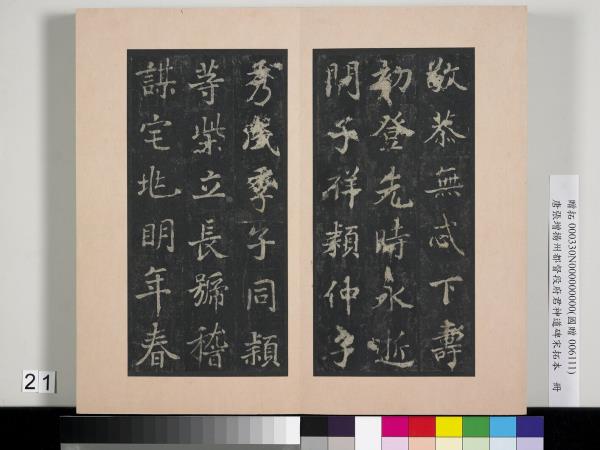 敬恭無忒下壽
初登先時永逝
門子祥頴仲子
秀成季子同頴
等柴立長號稽
謀宅兆明年春
贈拓 000330N000000000(國贈 006111)
唐張增揚州都督段府君神道碑宋拓本 冊
21